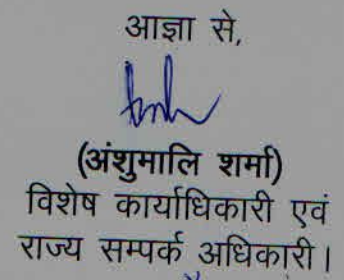 आज्ञा से,
(अंशुमालि शर्मा)
विशेष कार्याधिकारी एवं
राज्य सम्पर्क अधिकारी।